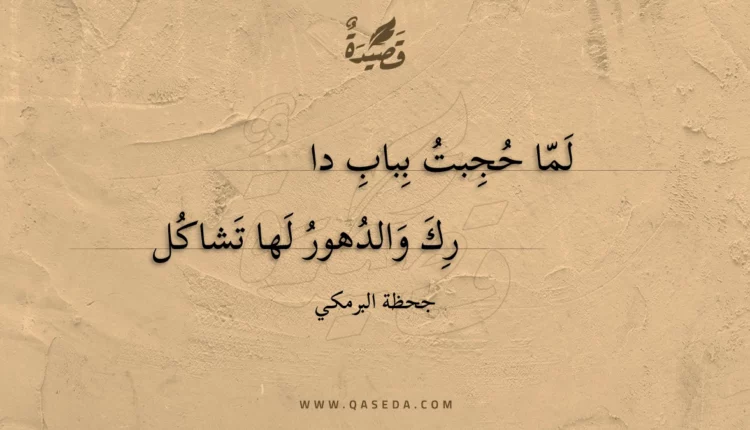 قَصِيدَةٌ
لَمّا حُجِبتُ بِبابِ دا
رِكَ وَالدُهورُ لَها تَشاكُل
جحظة البرمكي
WWW.QASEDA.COM